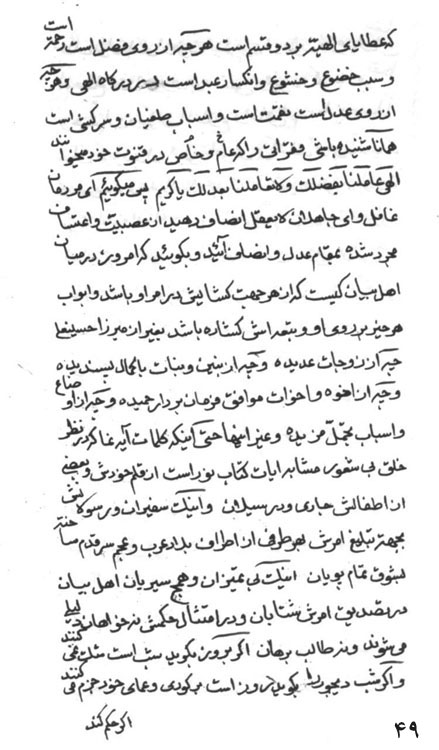 که عطایای الهیّه بر دو قسم است هرچه از روی فضل است رحمة است
و سبب خضوع و خشوع و انکسار عبد است در درگاه الهی و هرچه
از روی عدل است نقمت است و اسباب طغیان و سرکشی است
همانا شنیده باشی و قرائت راکه عام و خاص در قنوت خود میخوانند
الهی عاملنا بفضلک و لا تعاملنا بعدلک یا کریم پس میگوئیم ای مردمان
غافل و ای جاهلان لا یعقل انصاف دهید از عصبیت و اعتساف
مجرد شده بمقام عدل و انصاف آئید و بگوئید که امروز در میان
اهل بیان کیست که از هر جهت گشایش در امر او باشد و ابواب
هر چیز بر روی او و بتعه اش گشاده باشد بغیر از میرزا حسینعلی
چه از زوجات عدیده و چه از بنین و بنات با کمال پسندیده
و چه از اخوه و اخوات موافق فرمان بردار حمیده و چه از اوضاع
و اسباب تجمل مزیده و غیر اینها حتی آینکه کلمات آیه نما که در نظر
خلق بی شعور مشابه ایات کتاب نور است از قلم خودش و بعضی
از اطفالش جاری و در سیلان و اینک سفیران و رسولانش
بجهة تبلیغ امرش بهر طرفی از اطراف بلاد عرب و عجم سر قدم ساخته
بشوق تمام پویان اینک بی تمیزان و همج سیریان اهل بیان
در تصدیق امرش شتابان و در امتثال حکمش نه خواهان دلیل
می شوند و نه طالب برهان اگر بروز بگوید شب است مثلث می کنند
و اگر شب دیجور را بگوید روز است بر کوری و عمای خود جزم می کنند
اگر حکم کند
۴۹